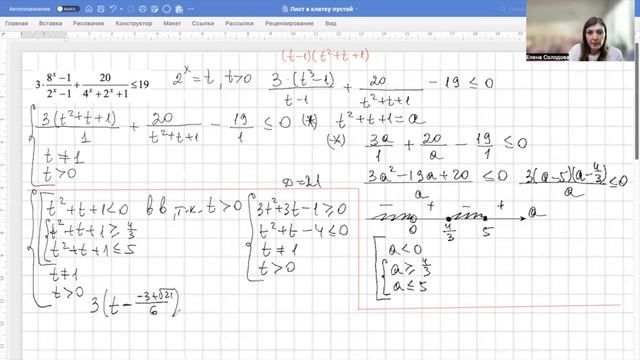 Автосохранение
Лист в клетку пустой
Главная Вставка Рисование Конструктор Макет Ссылки Рассылки Рецензирование Вид
Елена Солодова
(t-1)(t²+t+1)
3·(8ˣ−1)/(2ˣ−1) + 20/(4ˣ+2ˣ+1) ≤ 19
2ˣ = t, t>0
3·(t³-1)/(t-1) + 20/(t²+t+1) - 19 ≤ 0
3(t²+t+1)/1 + 20/(t²+t+1) - 19/1 ≤ 0 (*)
t ≠ 1
t > 0
t²+t+1 = a
(*) 3a/1 + 20/a - 19/1 ≤ 0
(3a²-19a+20)/a ≤ 0
3(a-5)(a-4/3)/a ≤ 0
− + − +
0 4/3 5 a
a < 0
a ≥ 4/3
a ≤ 5
t²+t+1 < 0 т.к. t>0
t²+t+1 ≥ 4/3
t²+t+1 ≤ 5
t ≠ 1
t > 0
D=21
3t²+3t-1 ≥ 0
t²+t-4 ≤ 0
t ≠ 1
t > 0
3(t - (-3+√21)/6)